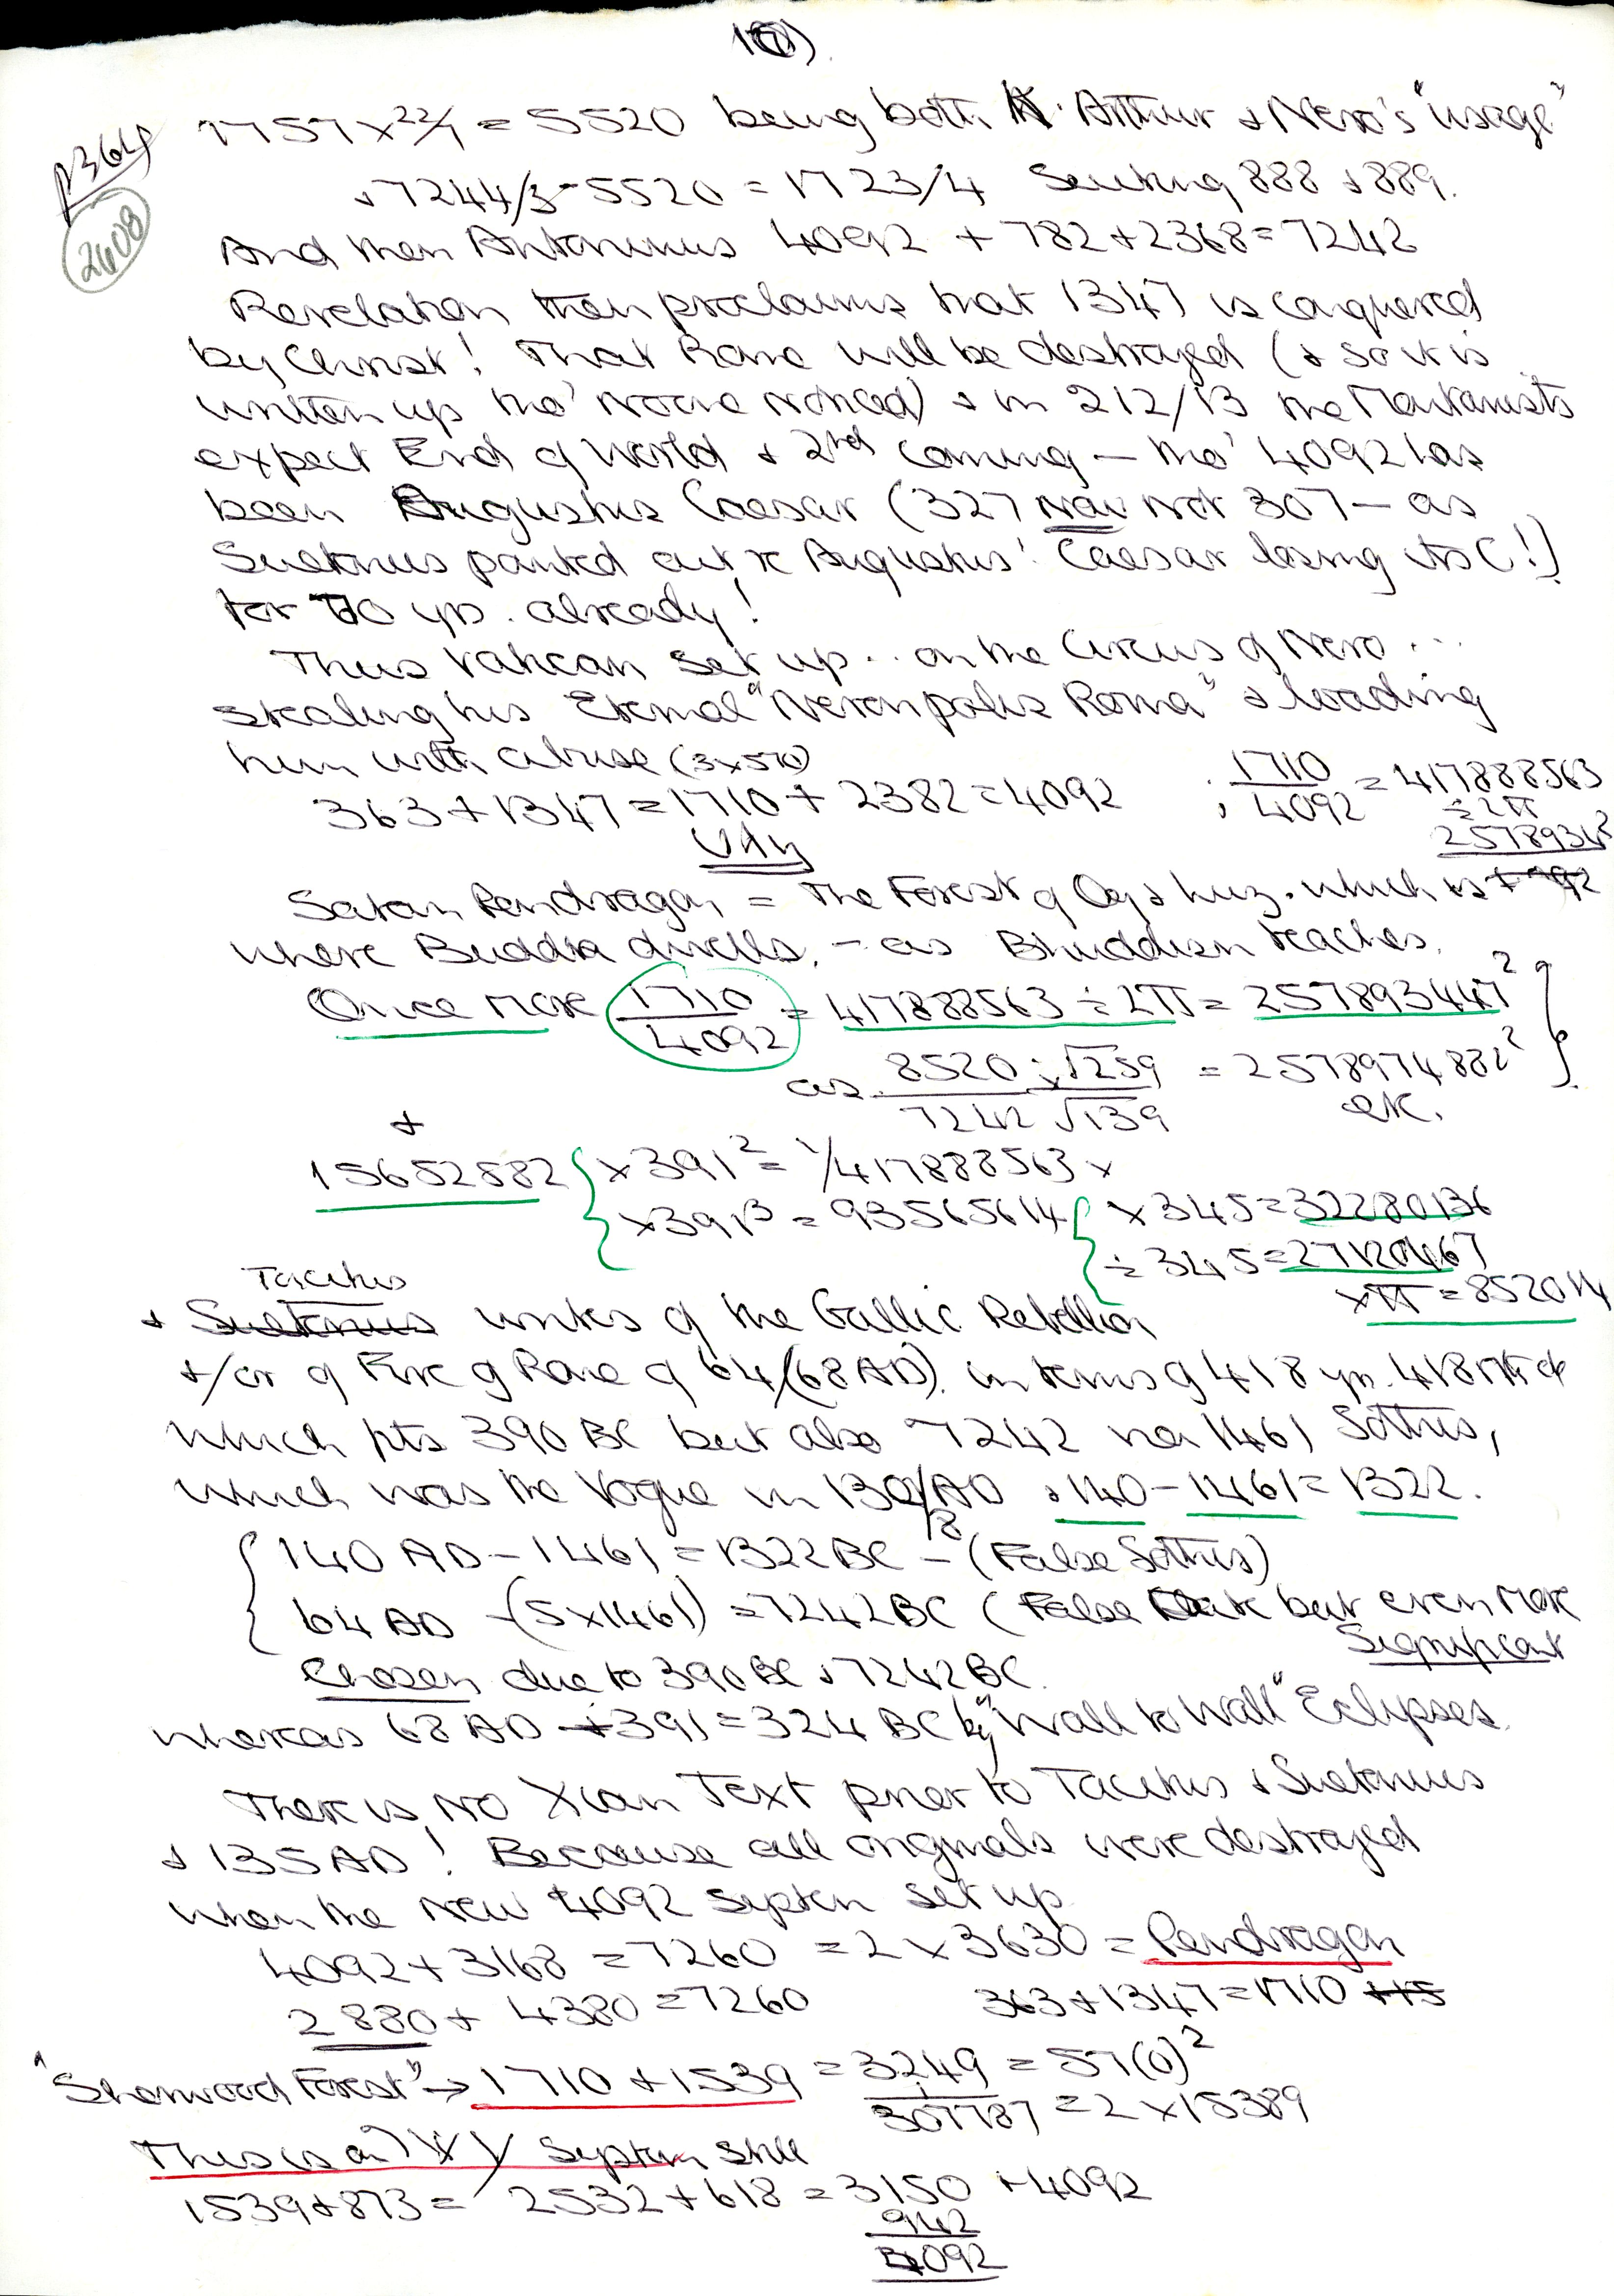 1(0)
p364
2608
1757 x 22/7 = 5520 being both K. Arthur + Nero's "usage"
+ 7244/3 - 5520 = 1723/4 Seeking 888 + 889.
And then Antoninus 4092 + 782 + 2368 = 7242
Revelation then proclaims that 1347 is conquered
by Christ! That Rome will be destroyed (+ so it is
written up tho' no one noticed) + in 212/13 the Montanists
expect End of World + 2nd Coming - tho' 4092 has
been Augustus Caesar (327 now not 307 - as
Suetonius pointed out re Augustus' Caesar losing its C!)
for 70 yrs. already!
Thus Vatican set up.. on the Circus of Nero...
stealing his Eternal "Neronpolis Roma" + loading
him with abuse (3x570)
363 + 1347 = 1710 + 2382 = 4092 ; 1710/4092 = 417888563
÷ 2π
2578934
Why
Satan Pendragon = The Forest of which is
where Buddha dwells, - as Bhuddism teaches.
Once more 1710/4092 = 417888563 ÷ 2π = 257893447²
as 8520 ÷ √259 / 7242 √139 = 2578974882² etc.
+
15652582 { x 391² = 1/417888563 x
x 391³ = 93565614 { x 345 = 32280136
÷ 345 = 27120467
x π = 852014
Tacitus
+ Suetonius writes of the Gallic Rebellion
+/or of Fire of Rome of 64/(68 AD). in terms of 418 yrs. 418
which pts 390 BC but also 7242 via 1461 Sothis,
which was the Vogue in 130/AD + 140 - 1461 = 1322.
{ 140 AD - 1461 = 1322 BC - (False Sothis)
64 AD - (5x1461) = 7242 BC (False Date but even more
Significant
Chosen due to 390 BC + 7242 BC.
whereas 68 AD - 391 = 324 BC by "Wall to Wall" Eclipses.
There is NO Xian Text prior to Tacitus + Suetonius
+ 135 AD! Because all originals were destroyed
when the New 4092 System set up
4092 + 3168 = 7260 = 2 x 3630 = Pendragon
2880 + 4380 = 7260 363 + 1347 = 1710
"Sherwood Forest" → 1710 + 1539 = 3249 = 57(0)²
307787 = 2 x 15389
This is on X Y System still
1539 + 873 = 2532 + 618 = 3150 + 4092
942
4092